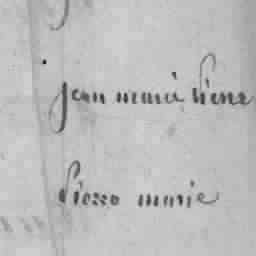 jean marie
pierre marie